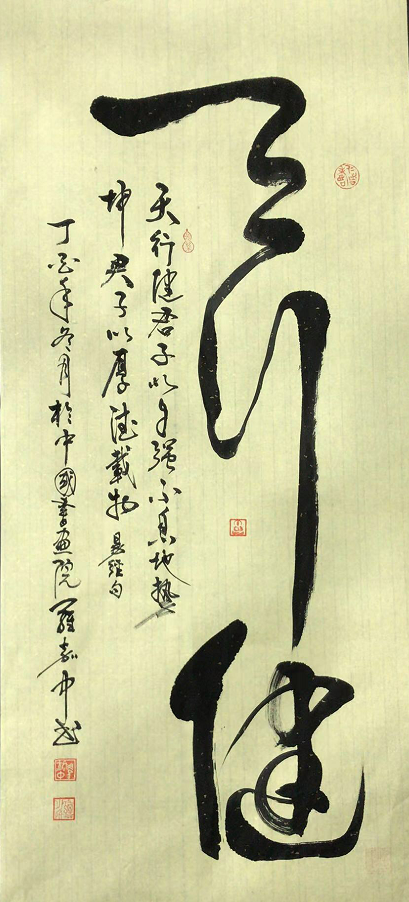 天行健
天行健君子以自强不息地势
坤君子以厚德載物易經句
丁酉年冬月於中國書畫院羅嘉中书